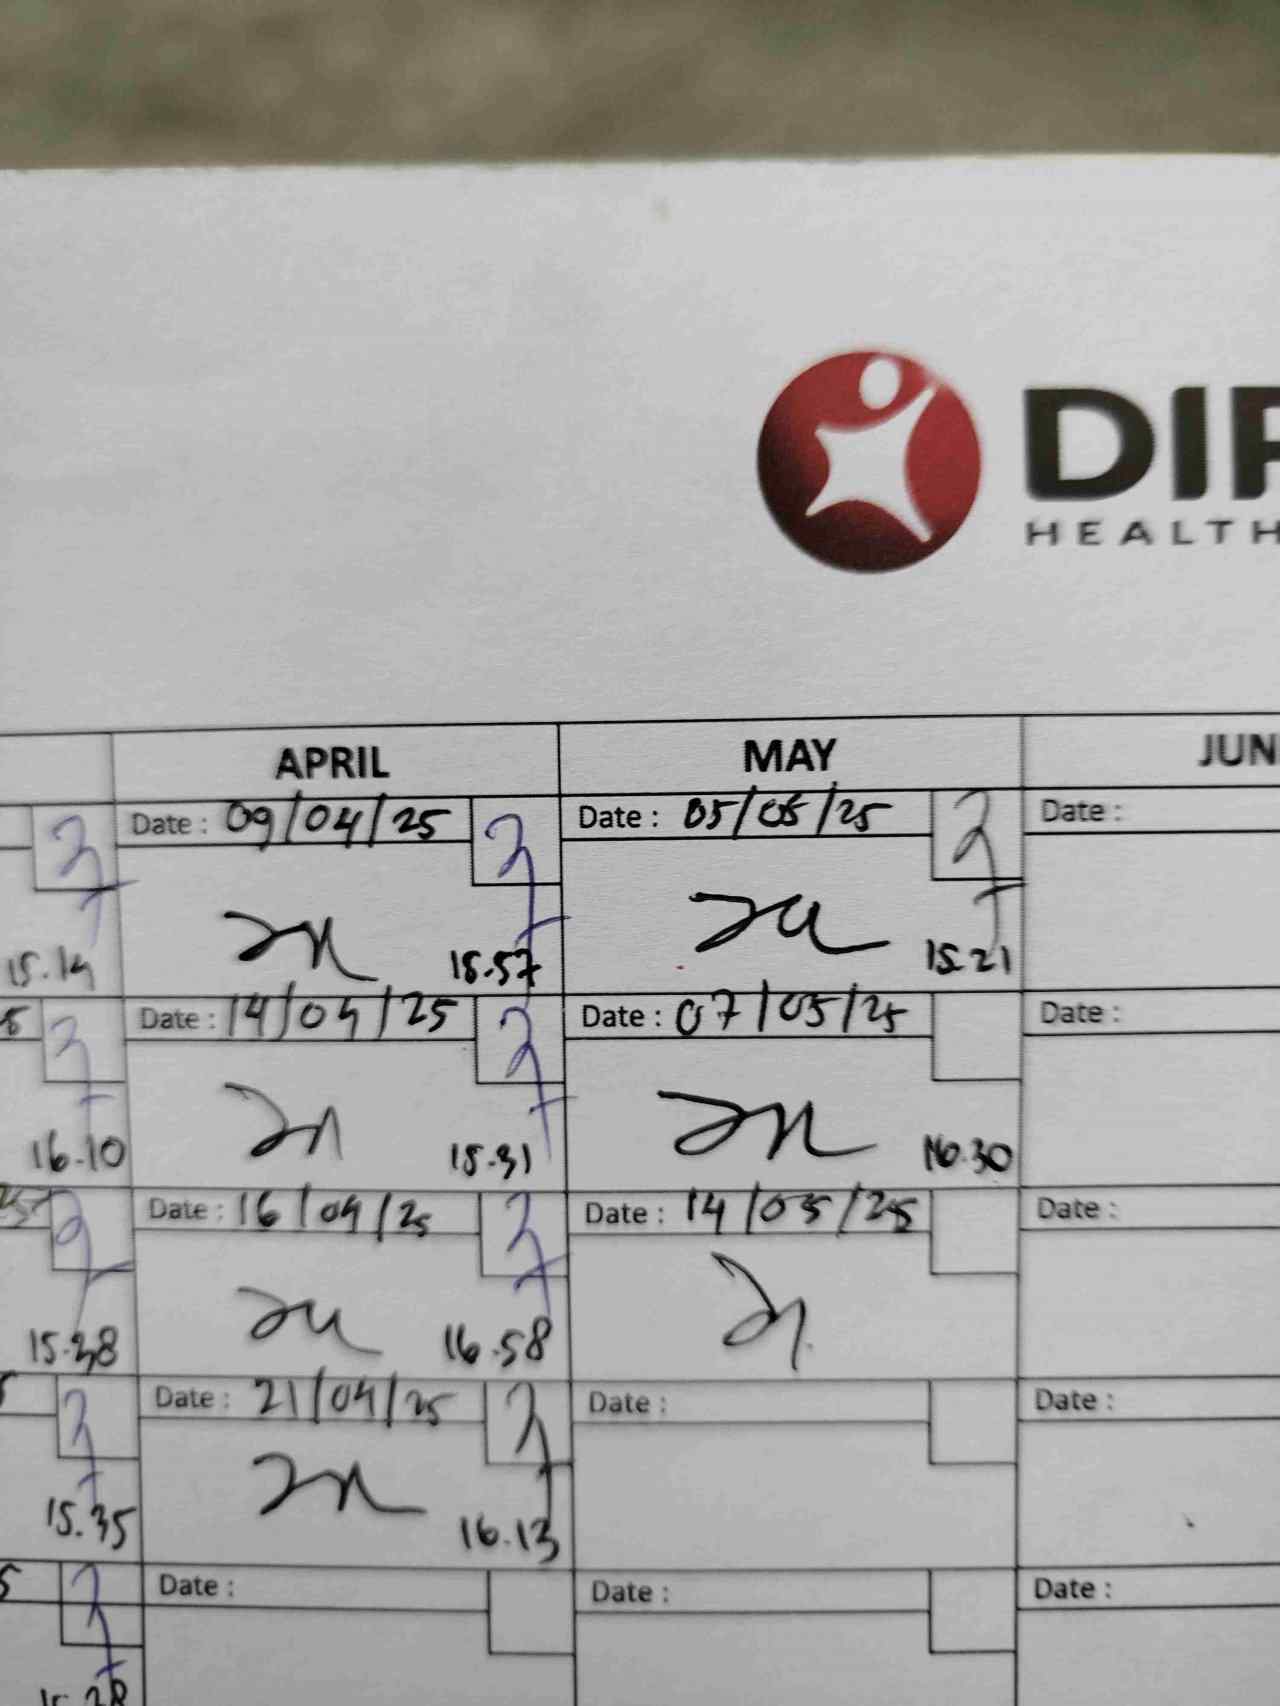 DIP
HEALTH
APRIL MAY JUN
Date : 09/04/25 Date : 05/05/25 Date :
15.19 15.57 15.21
Date : 14/04/25 Date : 07/05/25 Date :
16.10 15.31 16.30
Date : 16/04/25 Date : 14/05/25 Date :
15.38 16.58
Date : 21/04/25 Date : Date :
15.35 16.13
Date : Date : Date :